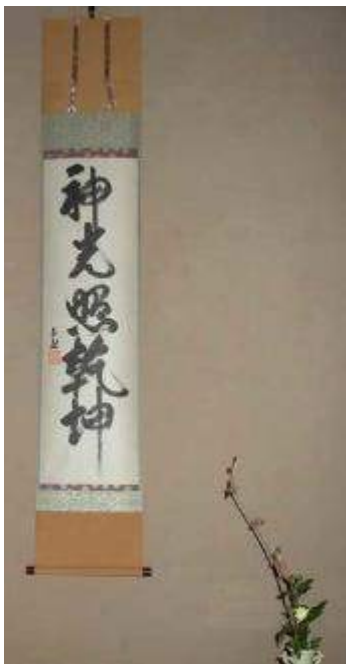 神光照乾坤